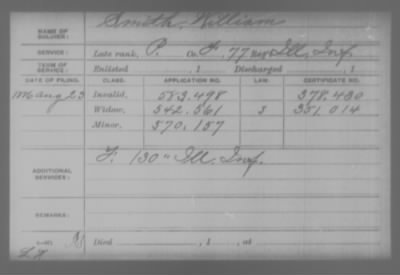 NAME OF SOLDIER: Smith, William
SERVICE: Late rank, P. Co. F, 77 Reg Ill. Inf.
TERM OF SERVICE: Enlisted , 1 Discharged , 1
DATE OF FILING. CLASS. APPLICATION NO. LAW. CERTIFICATE NO.
Invalid, 583.498 378.430
Widow, 542.561 3 351.014
Minor, 570.157
ADDITIONAL SERVICES: F. 130" Ill. Inf.
REMARKS:
Died , 1 , at